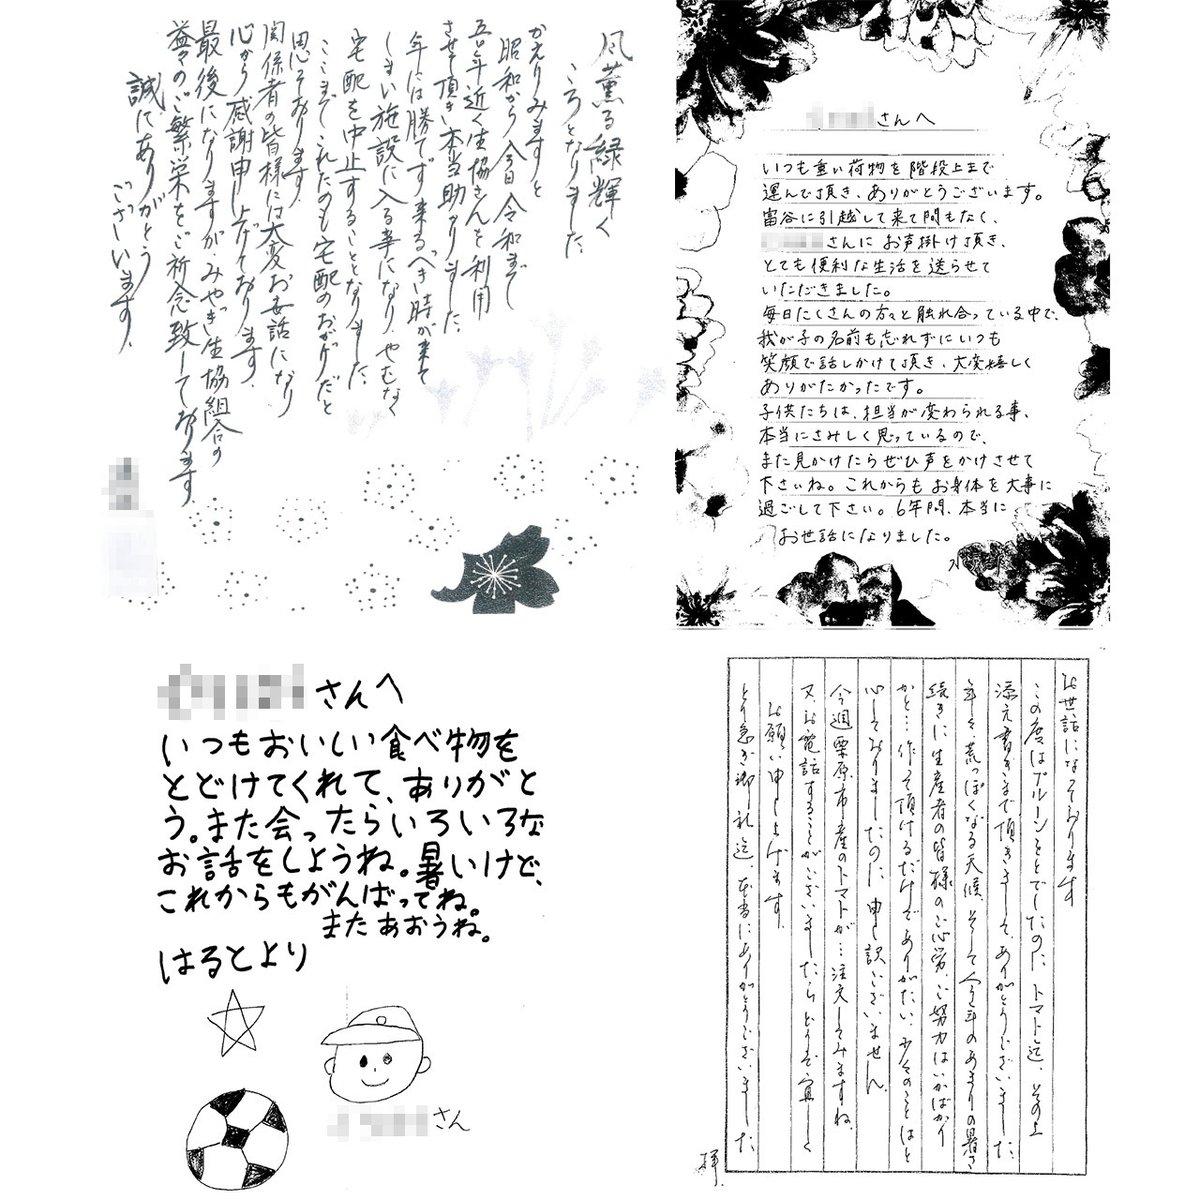 風薫る緑輝く
ころとなりました
かえりみますと
昭和から今日令和まで
五〇年近く生協さんを利用
させて頂き本当助かりました
年には勝てず来るべき時が来て
しまい施設に入る事になり、やむなく
宅配を中止することとなりました
ここまでこれたのも宅配のおかげだと
思っております
関係者の皆様には大変お世話になり
心から感謝申し上げております
最後になりますが、みやぎ生協組合の
益々のご繁栄をご祈念致しております
誠にありがとう
ございます
さんへ
いつも重い荷物を階段上まで
運んで頂き、ありがとうございます。
富谷に引越して来て間もなく、
さんにお声掛け頂き、
とても便利な生活を送らせて
いただきました。
毎日たくさんの方々と触れ合っている中で、
我が子の名前も忘れずにいつも
笑顔で話しかけて頂き、大変嬉しく
ありがたかったです。
子供たちは、担当が変わられる事、
本当にさみしく思っているので、
また見かけたらぜひ声をかけさせて
下さいね。これからもお身体を大事に
過ごして下さい。6年間、本当に
お世話になりました。
さんへ
いつもおいしい食べ物を
とどけてくれて、ありがと
う。また会ったらいろいろな
お話をしようね。暑いけど、
これからもがんばってね。
またあおうね。
はるとより
さん
お世話になっております
この度はプルーンをとでしたのに、トマト迄、その上
添え書きまで頂きまして、ありがとうございました
年々、荒っぽくなる天候、そして今年のあまりの暑さ
続きに生産者の皆様のご心労、ご努力はいかばかり
かと…作って頂けるだけでありがたい、少々のことはと
心しておりましたのに、申し訳ございません。
今週栗原市産のトマトが…注文してみますね。
又、お電話することがございましたらどうぞ宜しく
お願い申し上げます。
とり急ぎ御礼迄、本当にありがとうございました
拝